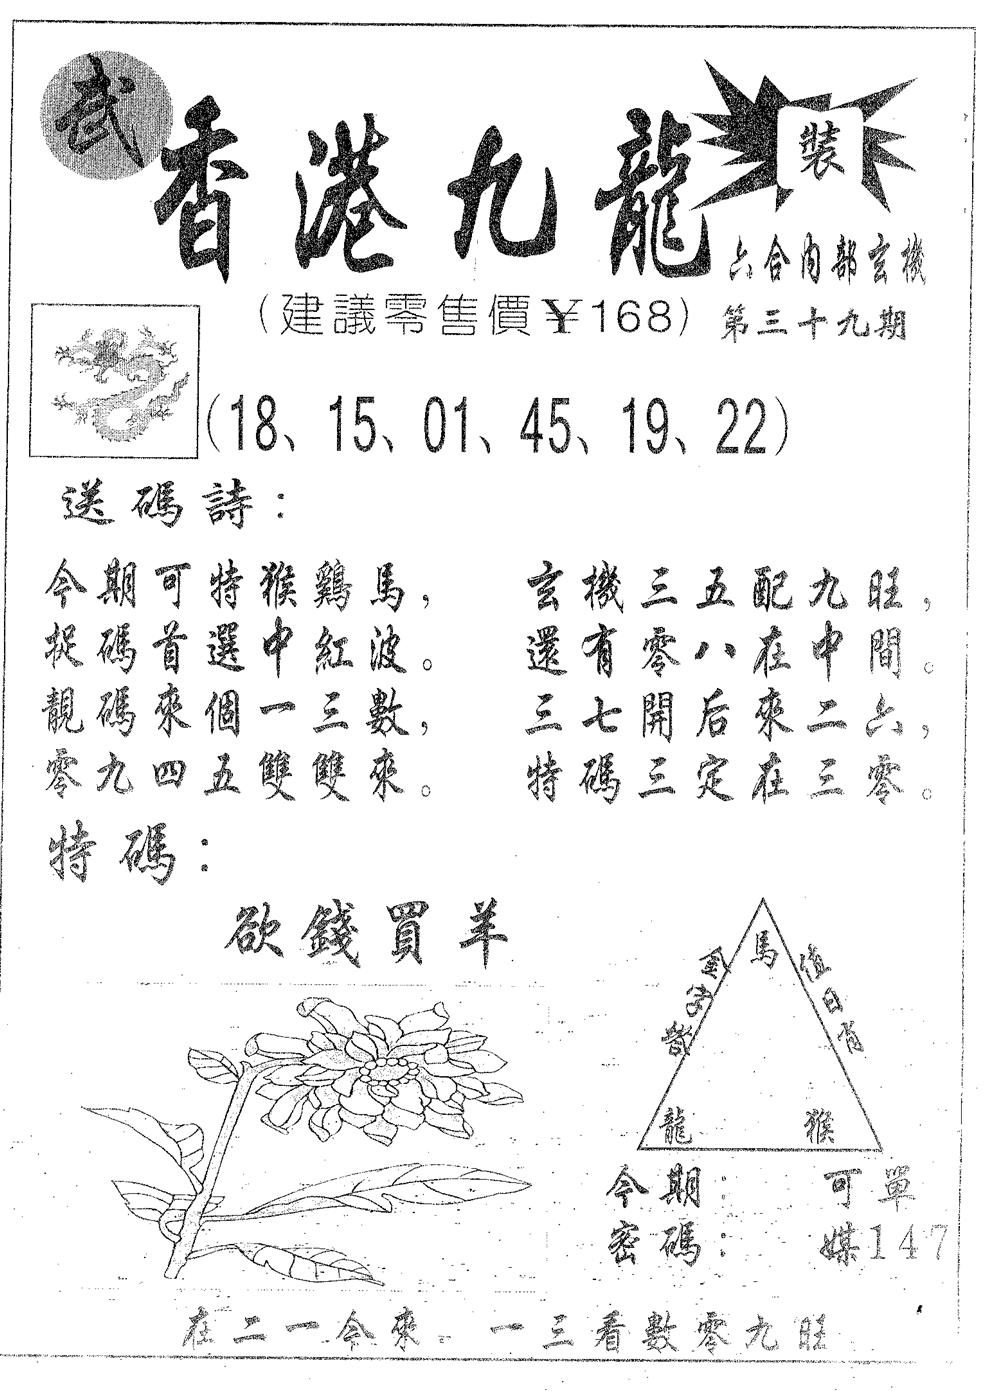 武
香港九龍
裝
六合內部玄機
(建議零售價¥168)
第三十九期
(18、15、01、45、19、22)
送碼詩：
今期可特猴鷄馬，
捉碼首選中紅波。
靚碼來個一三數，
零九四五雙雙來。
玄機三五配九旺，
還有零八在中間。
三七開后來二六，
特碼三定在三零。
特碼：
欲錢買羊
金字
馬
值日肖
龍
猴
今期： 可單
密碼： 媒147
在二一今來。一三看數零九旺